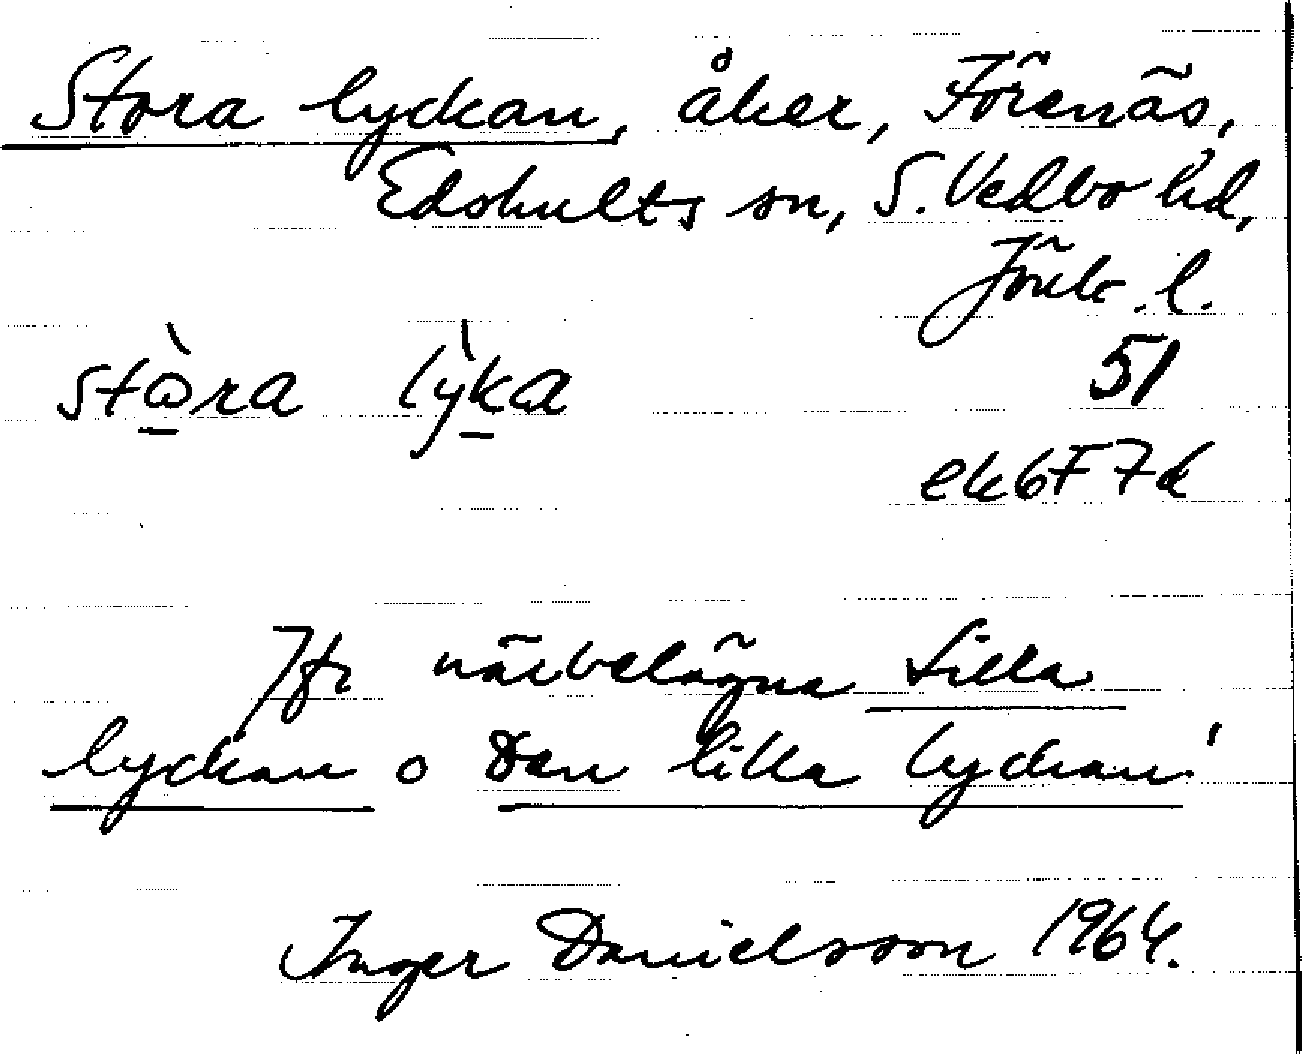 Stora lyckan, åker, Förenäs,
Edshults sn, S. Vedbo hd,
Jönk. l.
stὼra lỳka 51
ek6F7d
Jfr närbelägna Lilla
lyckan o Den lilla lyckan!
Inger Danielsson 1964.